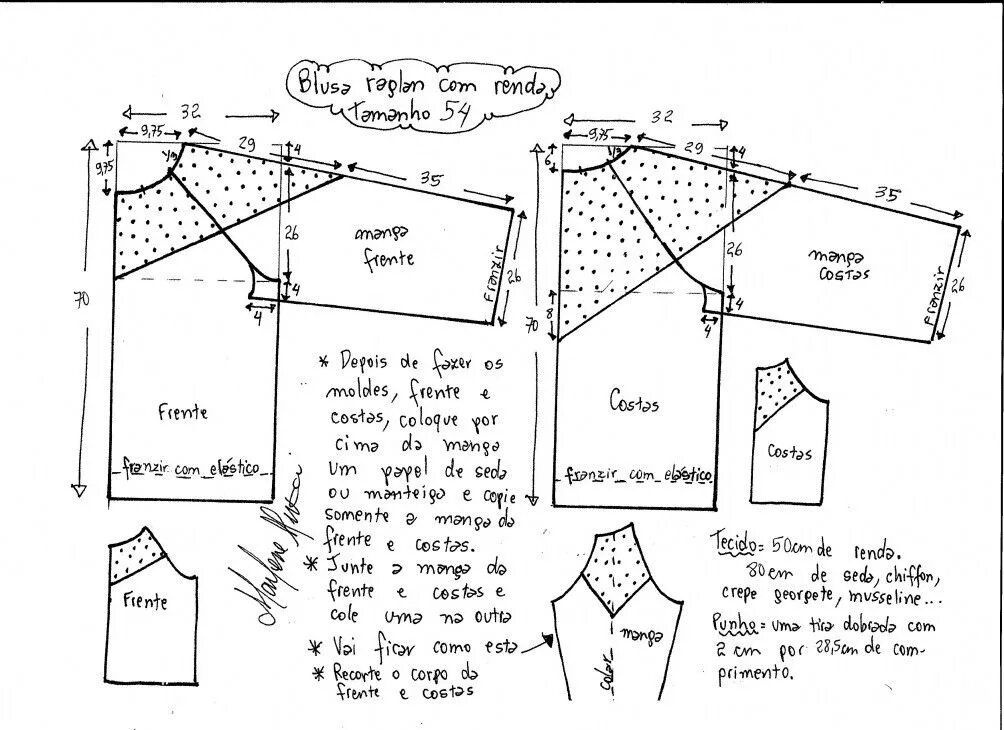 Blusa raglan com renda
tamanho 54
32
9,75
9,75
1/3
29
4
35
26
4
4
70
manga
frente
franzir
26
Frente
franzir com elástico
32
9,75
6
1/3
29
4
35
26
4
4
8
70
manga
costas
franzir
26
Costas
franzir com elástico
* Depois de fazer os
moldes, frente e
costas, coloque por
cima da manga
um papel de seda
ou manteiga e copie
somente a manga da
frente e costas.
* Junte a manga da
frente e costas e
cole uma na outra
* Vai ficar como esta
* Recorte o corpo da
frente e costas
Frente
manga
colar
Costas
Tecido = 50cm de renda.
80cm de seda, chiffon,
crepe georgete, musseline...
Punho = uma tira dobrada com
2 cm por 28,5cm de com-
primento.